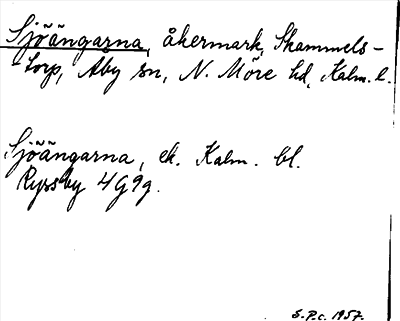 Sjöängarna, åkermark, Skammels-
torp, Åby sn, N. Möre hd, Kalm. l.
Sjöängarna, ek. Kalm. bl.
Ryssby 4G9g.
S.P.c. 1957.